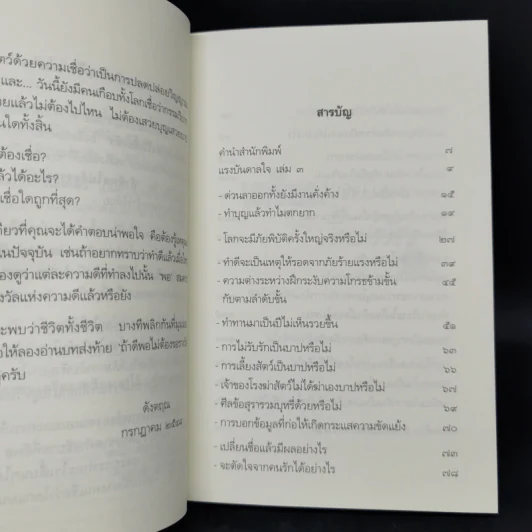 ตว์ด้วยความเชื่อว่าเป็นการปลดปล่อยวิญญาณ
และ... วันนี้ยังมีคนเกือบทั้งโลกเชื่อว่า
ยแล้วไม่ต้องไปไหน ไม่ต้องเสวยบุญ
นใดทั้งสิ้น
ต้องเชื่อ?
ล้วได้อะไร?
เชื่อใดถูกที่สุด?
เดียวที่คุณจะได้คำตอบน่าพอใจ คือต้อง
นปัจจุบัน เช่นถ้าอยากทราบว่าทำดีแล้ว
องดูว่าแต่ละความดีที่ทำลงไปนั้น 'พอ'
งวัลแห่งความดีแล้วหรือยัง
ะพบว่าชีวิตทั้งชีวิต บางทีพลิกกันที่
อให้ลองอ่านบทส่งท้าย 'ถ้าดีพอไม่ต้อง
ครับ
ดังตฤณ
กรกฎาคม ๒๕๔๘
สารบัญ
คำนำสำนักพิมพ์ ๗
แรงบันดาลใจ เล่ม ๓ ๙
- ด่วนลาออกทั้งยังมีงานคั่งค้าง ๑๕
- ทำบุญแล้วทำไมตกยาก ๑๙
- โลกจะมีภัยพิบัติครั้งใหญ่จริงหรือไม่ ๒๗
- ทำดีจะเป็นเหตุให้รอดจากภัยร้ายแรงหรือไม่ ๓๙
- ความต่างระหว่างฝึกระงับความโกรธข้ามขั้น ๔๕
กับตามลำดับขั้น
- ทำทานมาเป็นปีไม่เห็นรวยขึ้น ๕๑
- การไม่รับรักเป็นบาปหรือไม่ ๖๓
- การเลี้ยงสัตว์เป็นบาปหรือไม่ ๖๖
- เจ้าของโรงฆ่าสัตว์ไม่ได้ฆ่าเองบาปหรือไม่ ๖๗
- ศีลข้อสุรารวมบุหรี่ด้วยหรือไม่ ๖๙
- การบอกข้อมูลที่ก่อให้เกิดกระแสความขัดแย้ง ๗๐
- เปลี่ยนชื่อแล้วมีผลอย่างไร ๗๓
- จะตัดใจจากคนรักได้อย่างไร ๗๘